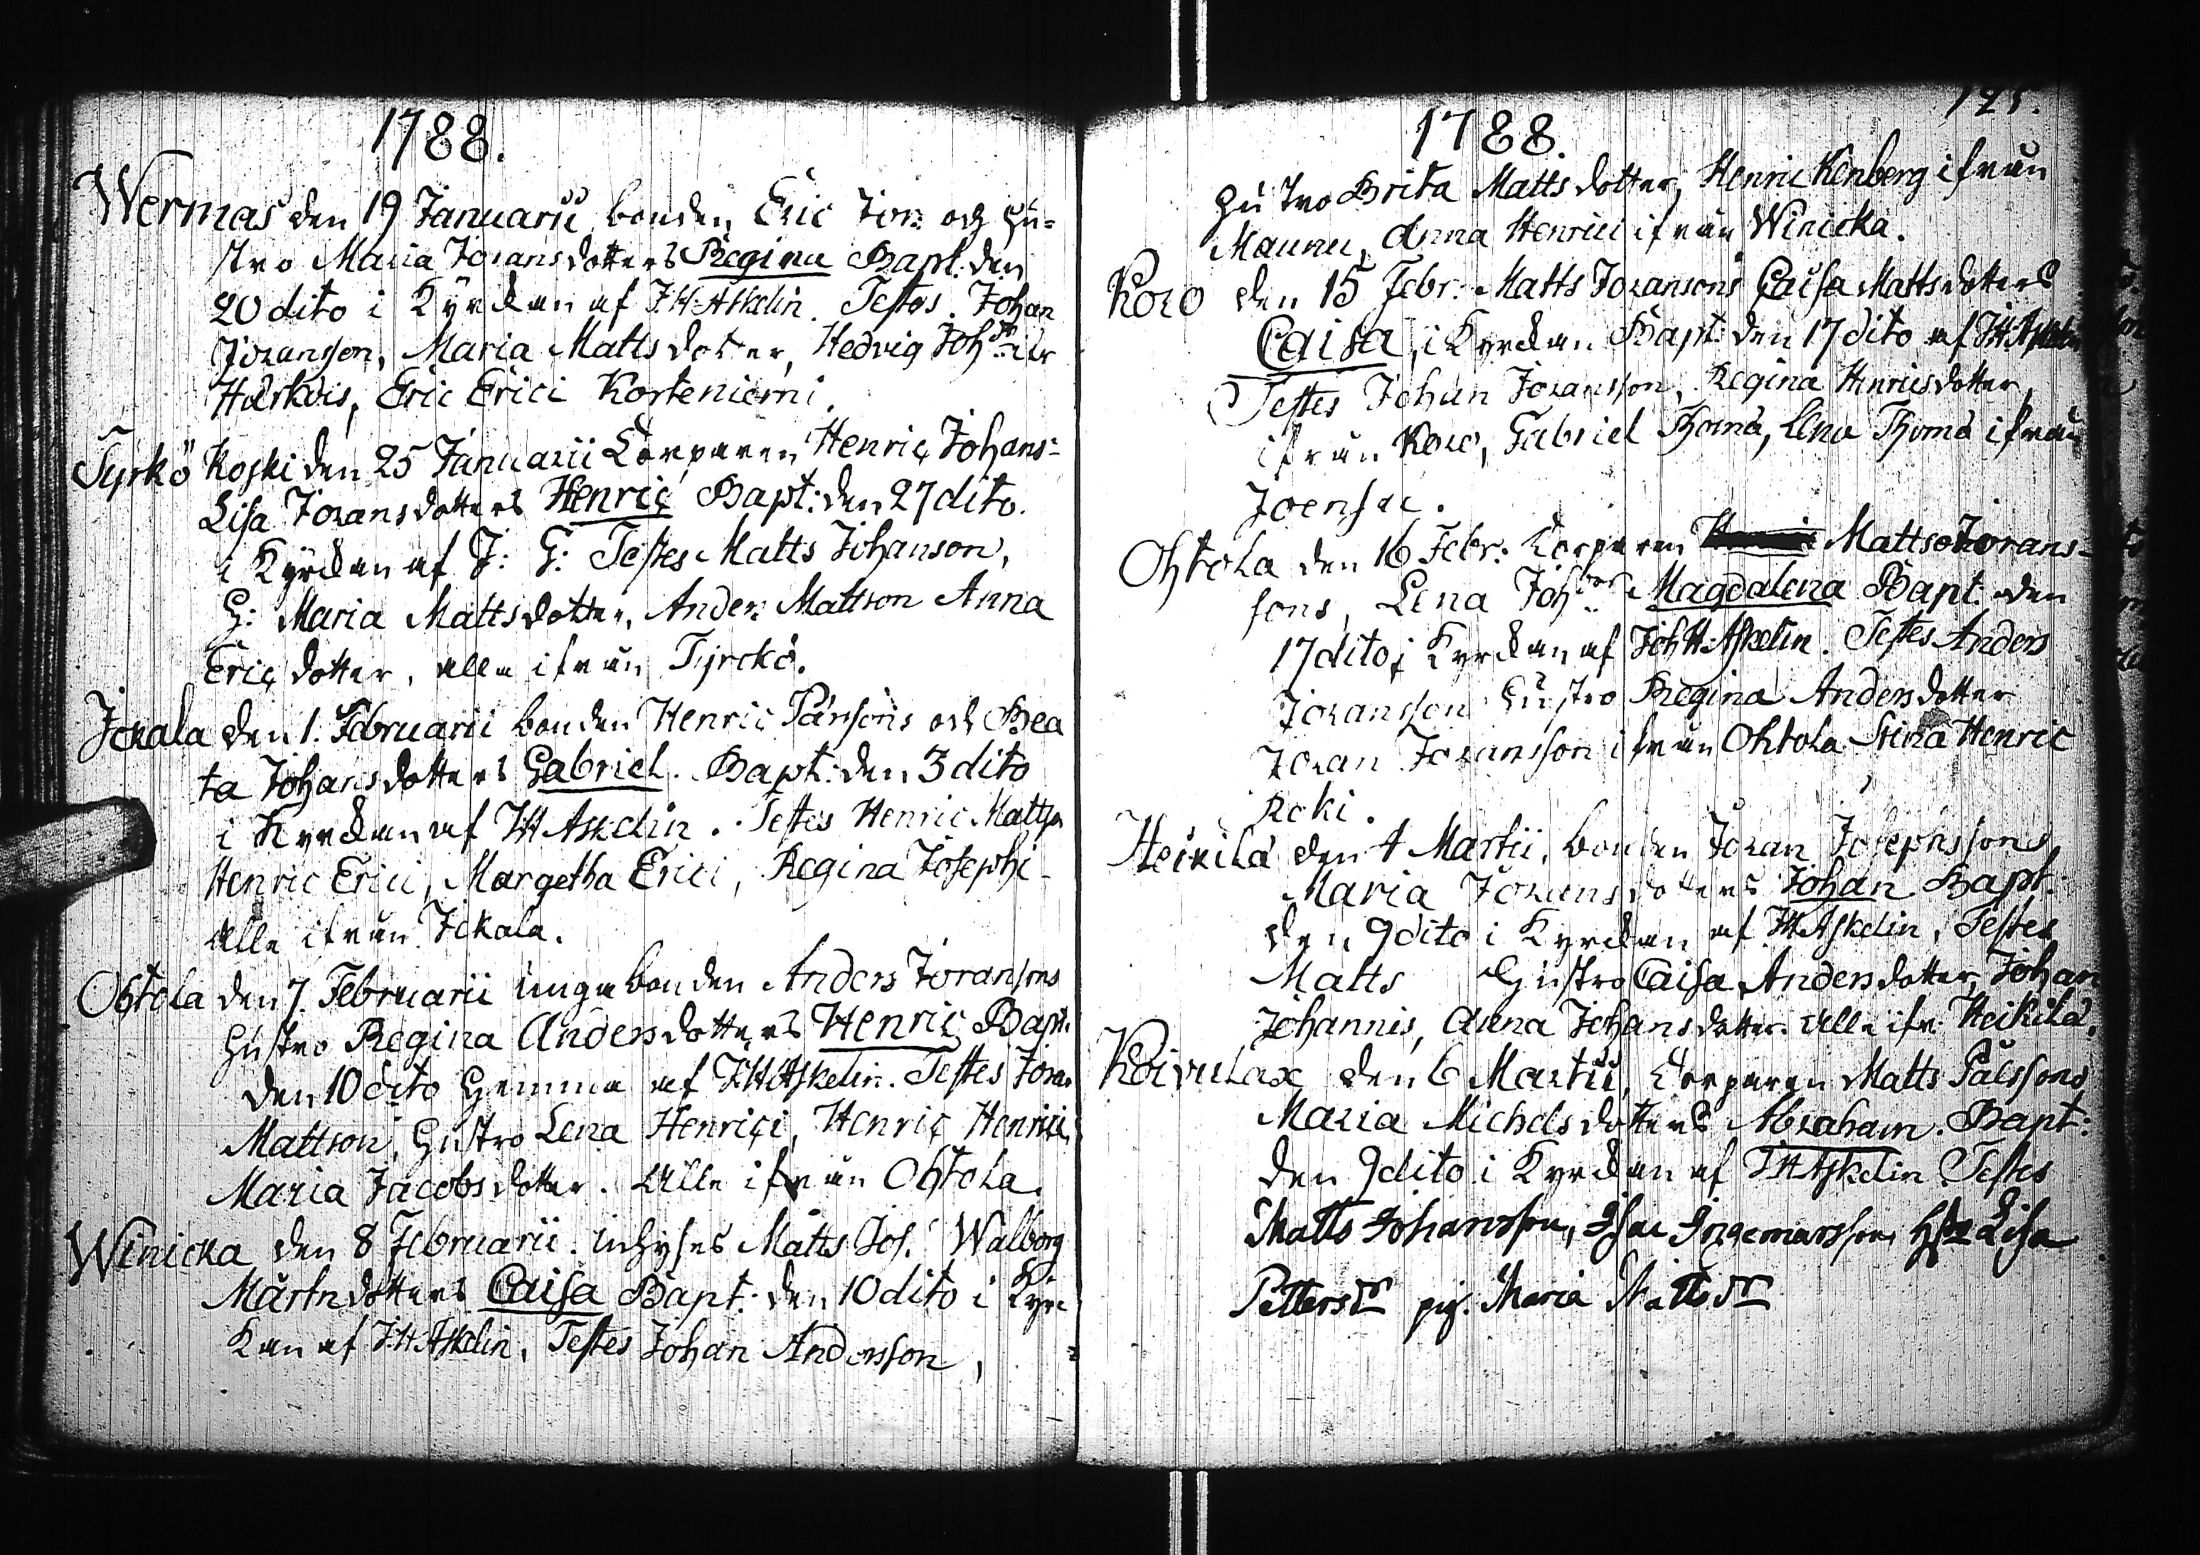 1788.
Wermas den 19 Januarii bonden Eric Jör: och hu-
stro Maria Joransdotters Regina Bapt: den
20 dito i Kyrckan af J.H. Askelin. Testes. Johan
Joransson, Maria Mattsdotter, Hedvig Joh:
Härkois, Eric Erici Korteniemi.
Tyrkö Koski den 25 Januarii Torparen Henric Johans-
Lisa Joransdotters Henric Bapt: den 27 dito.
i Kyrckan af J: G: Testes Matts Johanson,
H: Maria Mattsdotter, Anders Mattson Anna
Ericsdotter, alle ifrån Tyrckö.
Jckala den 1. Februarii bonden Henric Pärssons och Bea
ta Johansdotters Gabriel. Bapt: den 3 dito
i Kyrckan af J.H. Askelin. Testes Henric Mattson
Henric Erici, Margetha Erici, Regina Josephi
alle ifrån Jckala.
Ohtola den 7. Februarii unga bonden Anders Joransons
Hustro Regina Andersdotters Henric Bapt.
den 10 dito Hemma af J.H. Askelin. Testes Joran
Mattson, Hustro Lena Henrici, Henric Henrici
Maria Jacobsdotter. Alle ifrån Ohtola.
Winicka den 8 Februarii. Inhyses Matts Jos. Walborg
Märtnsdotters Caisa Bapt: den 10 dito i Kyrc
kan af J.H. Askelin. Testes Johan Andersson,
195.
1788.
Hustro Brita Mattsdotter, Henric Kenberg ifrån
Maunu, Anna Henrici ifrån Winicka.
Koro den 15 Febr: Matts Joransons Caisa Mattsdotters
Caisa, i Kyrckan Bapt: den 17 dito af J.H. Askelin
Testes Johan Joransson, Regina Henricsdotter,
ifrån Koro, Gabriel Thomä, Lena Thomä ifrån
Joensu.
Ohtola den 16 Febr: Torparen Matts Jorans-
sons, Lena Joh: Magdalena Bapt. den
17 dito i Kyrckan af Joh H: Askelin. Testes Anders
Joransson Hustro Regina Andersdotter
Joran Joransson ifrån Ohtola Stina Henric
Roki.
Heikilä den 4 Martii, bonden Joran Josephssons
Maria Joransdotters Johan Bapt:
den 9 dito i Kyrckan af J.H. Askelin, Testes
Matts Hustro Caisa Andersdotter, Johan
Johannis, Anna Johansdotter. Alle ifr: Heikilä.
Koivulax den 6 Martii, Torparen Matts Pålssons
Maria Michelsdotters Abraham. Bapt:
den 9 dito i Kyrckan af J.H. Askelin Testes
Matts Johansson, Isac Ingemarsson, Hst Lisa
Pettersdr pig. Maria Mattsdr